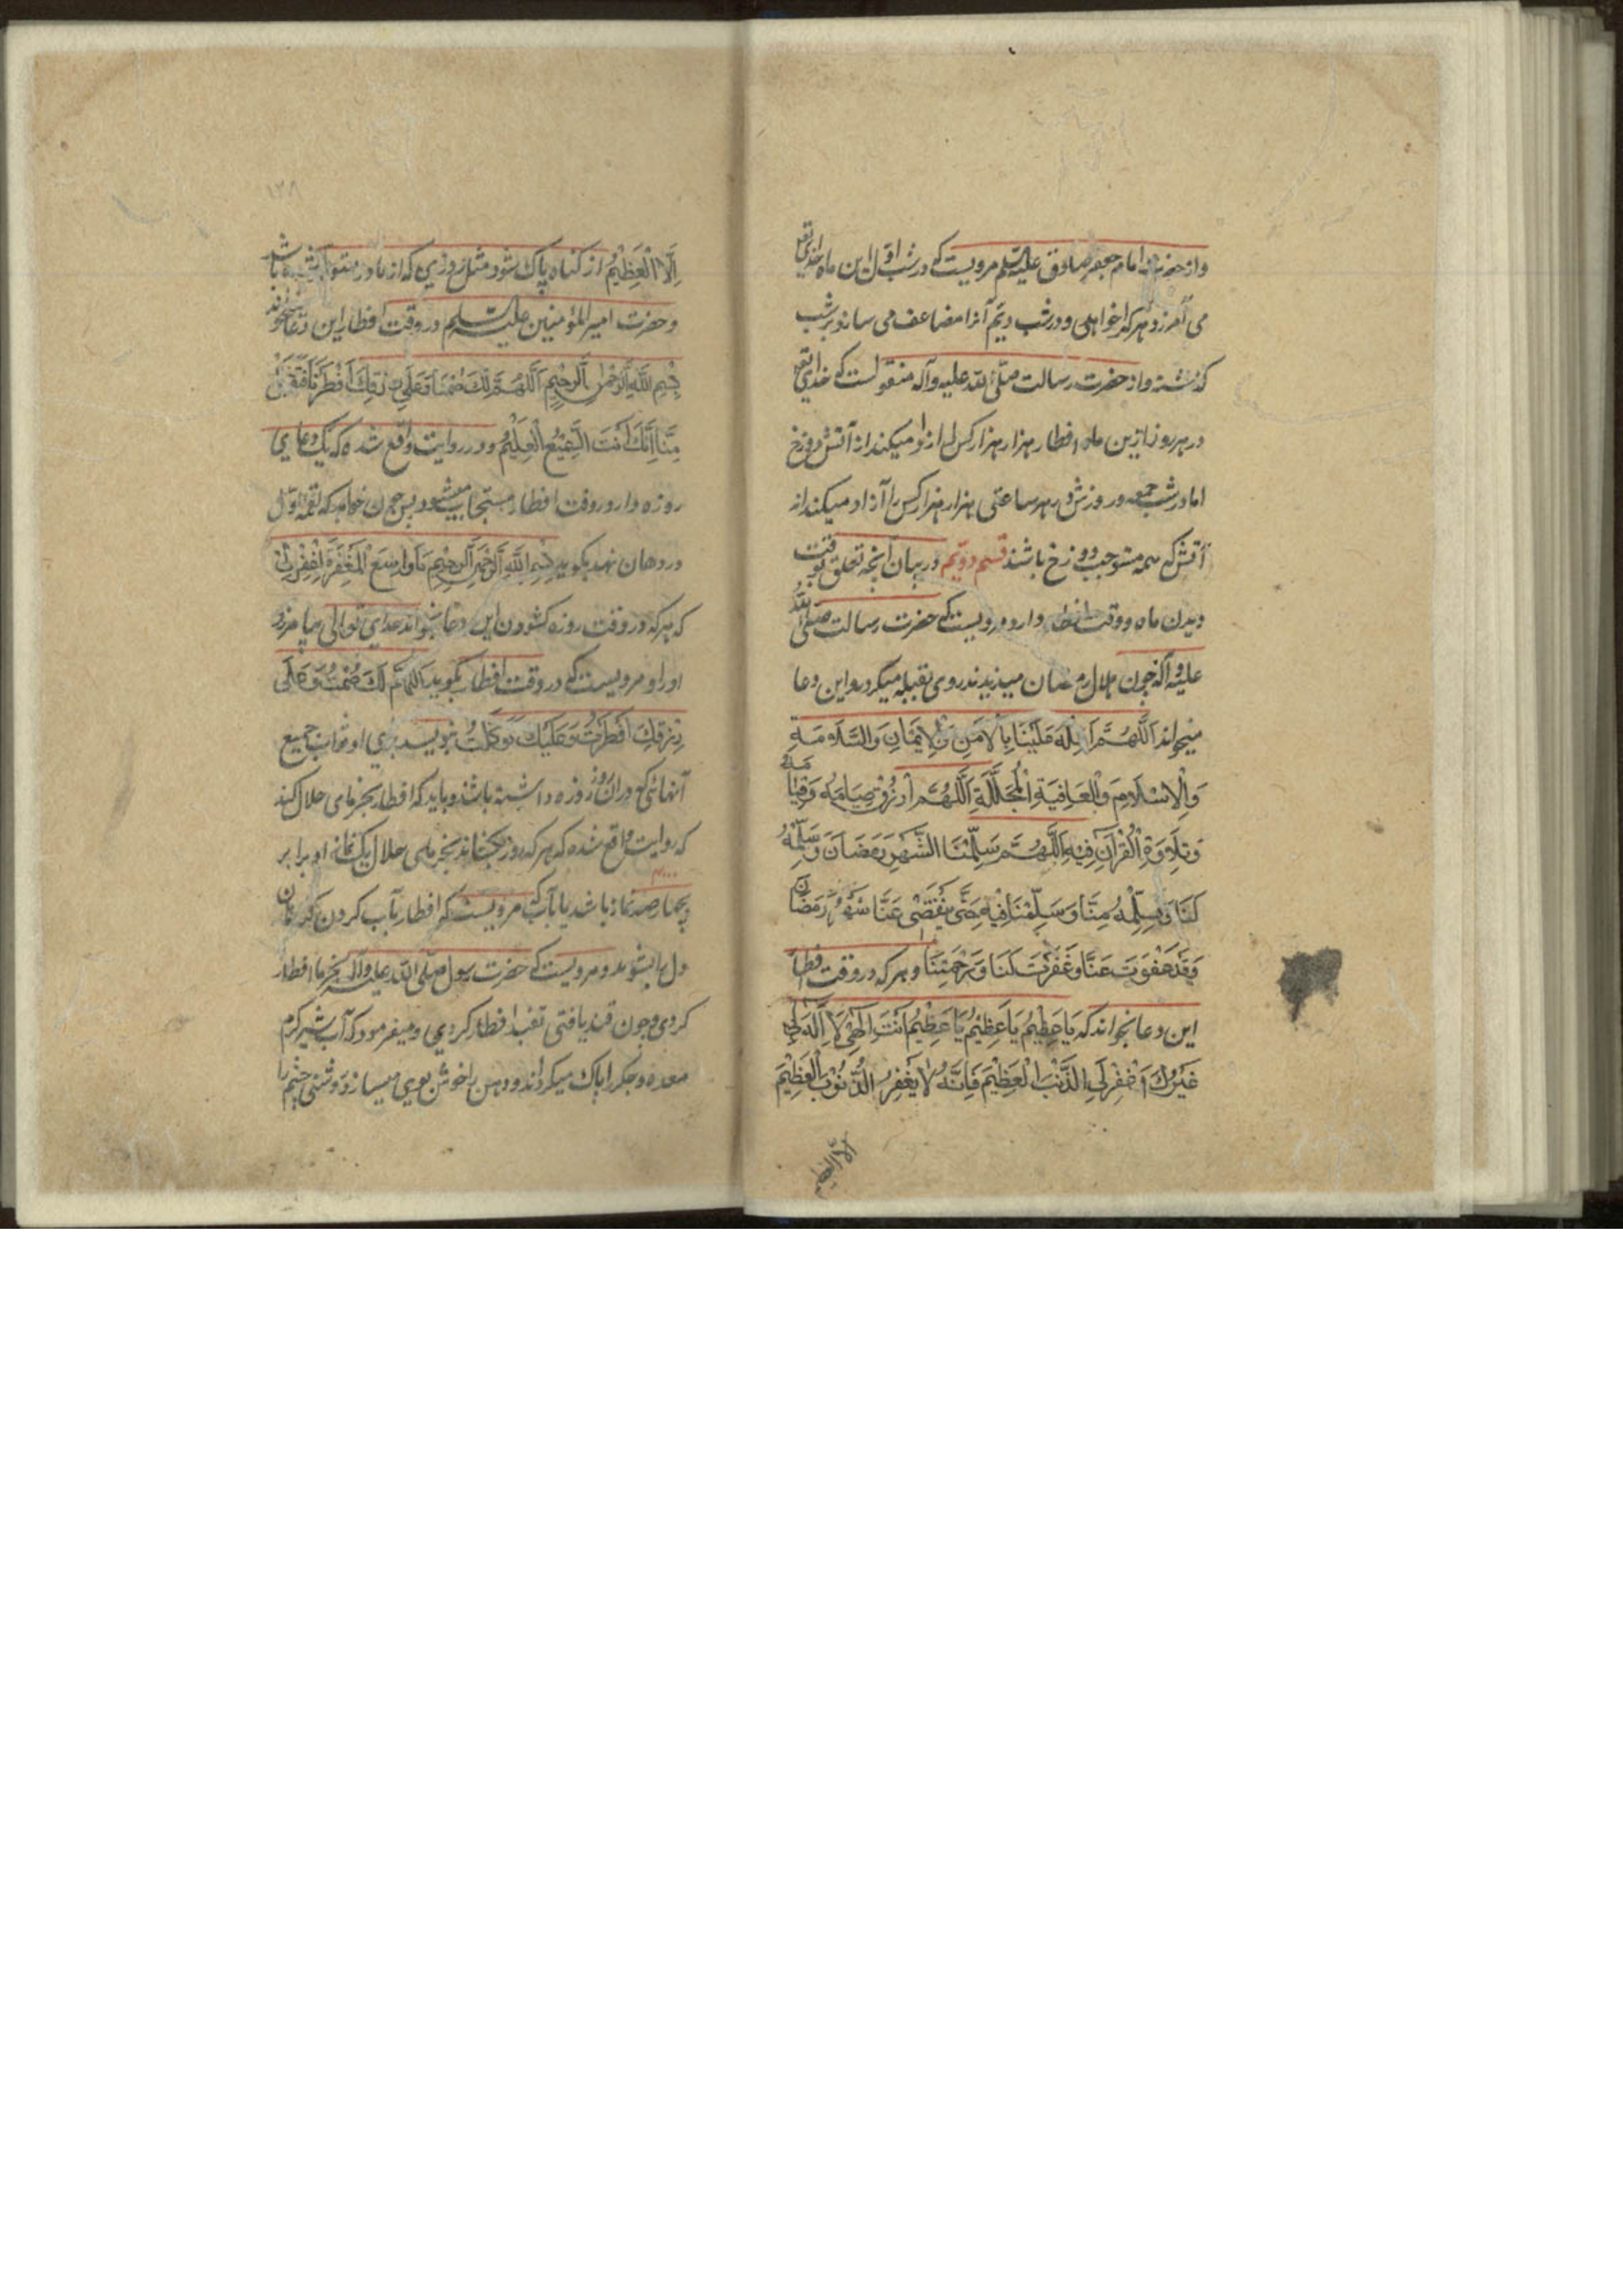 و از حضرت امام جعفر صادق علیه السلم مرویست که در شب اول این ماه خدای تع
می آمرزد هر که را خواهد و در شب دیم آنرا مضاعف می سازد بر شب
گذشته و از حضرت رسالت صلی الله علیه و آله منقولست که خدای تع
در هر روز ازین ماه افطار هزار هزار کس را ازاد میکند از آتش دوزخ
اما در شب جمعه و روزش در هر ساعتی هزار هزار کس را آزاد میکند از
آتش که همه مستوجب دوزخ باشند قسم دویم در بیان آنچه تعلق بوقت
دیدن ماه و وقت افطار دارد مرویست که حضرت رسالت صلی الله
علیه و آله چون هلال رمضان میدیدند روی بقبله میکرد و این دعا
میخواند اَللّهُمَّ اَهِلَّهُ عَلَیْنَا بِالْاَمْنِ وَالْاِیمَانِ وَالسَّلَامَةِ
وَالْاِسْلَامِ وَالْعَافِیَةِ الْمُجَلَّلَةِ اَللّهُمَّ ارْزُقْنَا صِیَامَهُ وَقِیَامَهُ
وَتِلَاوَةَ الْقُرْآنِ فِیهِ اَللّهُمَّ سَلِّمْنَا الشَّهْرَ رَمَضَانَ وَسَلِّمْهُ
لَنَا وَسَلِّمْهُ مِنَّا وَسَلِّمْنَا فِیهِ حَتَّی یَنْقَضِی عَنَّا شَهْرُ رَمَضَانَ
وَقَدْ عَفَوْتَ عَنَّا وَغَفَرْتَ لَنَا وَرَحِمْتَنَا و هر که در وقت افطار
این دعا بخواند که یَا عَظِیمُ یَا عَظِیمُ یَا عَظِیمُ اَنْتَ اِلهِی لَا اِلهَ لِی
غَیْرُكَ اغْفِرْ لِیَ الذَّنْبَ الْعَظِیمَ فَاِنَّهُ لَا یَغْفِرُ الذُّنُوبَ الْعَظِیمَ
الا العظیم
۱۳۸
اِلَّا الْعَظِیمُ از کناه پاک شود مثل روزی که از مادر متولد شده باشد
و حضرت امیر المؤمنین علیه السلم در وقت افطار این دعا میخواند
بِسْمِ اللهِ الرَّحْمنِ الرَّحِیمِ اَللّهُمَّ لَكَ صُمْنَا وَعَلَی رِزْقِكَ اَفْطَرْنَا فَتَقَبَّلْ
مِنَّا اِنَّكَ اَنْتَ السَّمِیعُ الْعَلِیمُ و در روایت واقع شده که یک دعای
روزه دار در وقت افطار مستجاب میشود پس چون خواهد که لقمه اول
در دهان نهد بکوید بِسْمِ اللهِ الرَّحْمنِ الرَّحِیمِ یَا وَاسِعَ الْمَغْفِرَةِ اِغْفِرْ لِی
که هر که در وقت روزه کشودن این دعا بخواند خدای تعالی بیامرزد
او را و مرویست که در وقت افطار بکوید اَللّهُمَّ لَكَ صُمْتُ وَعَلَی
رِزْقِكَ اَفْطَرْتُ وَعَلَیْكَ تَوَكَّلْتُ بنویسد برای او ثواب جمیع
آنهائی که در ان روز روزه داشته باشند و باید که افطار بخرمای حلال کند
که روایت واقع شده که هر که روزه بکشاند بخرمای حلال یک نماز او برابر
بچهار صد نماز باشد یا بآب که مرویست که افطار بآب کردن کناهان
دل را بشوید و مرویست که حضرت رسول صلی الله علیه و آله بخرما افطار
کردی و چون قند یافتی بقند افطار کردی و میفرمود که آب شیر کرم
معده و جکر را پاک میکرداند و دهن را خوش بوی میسازد و روشنی چشم را